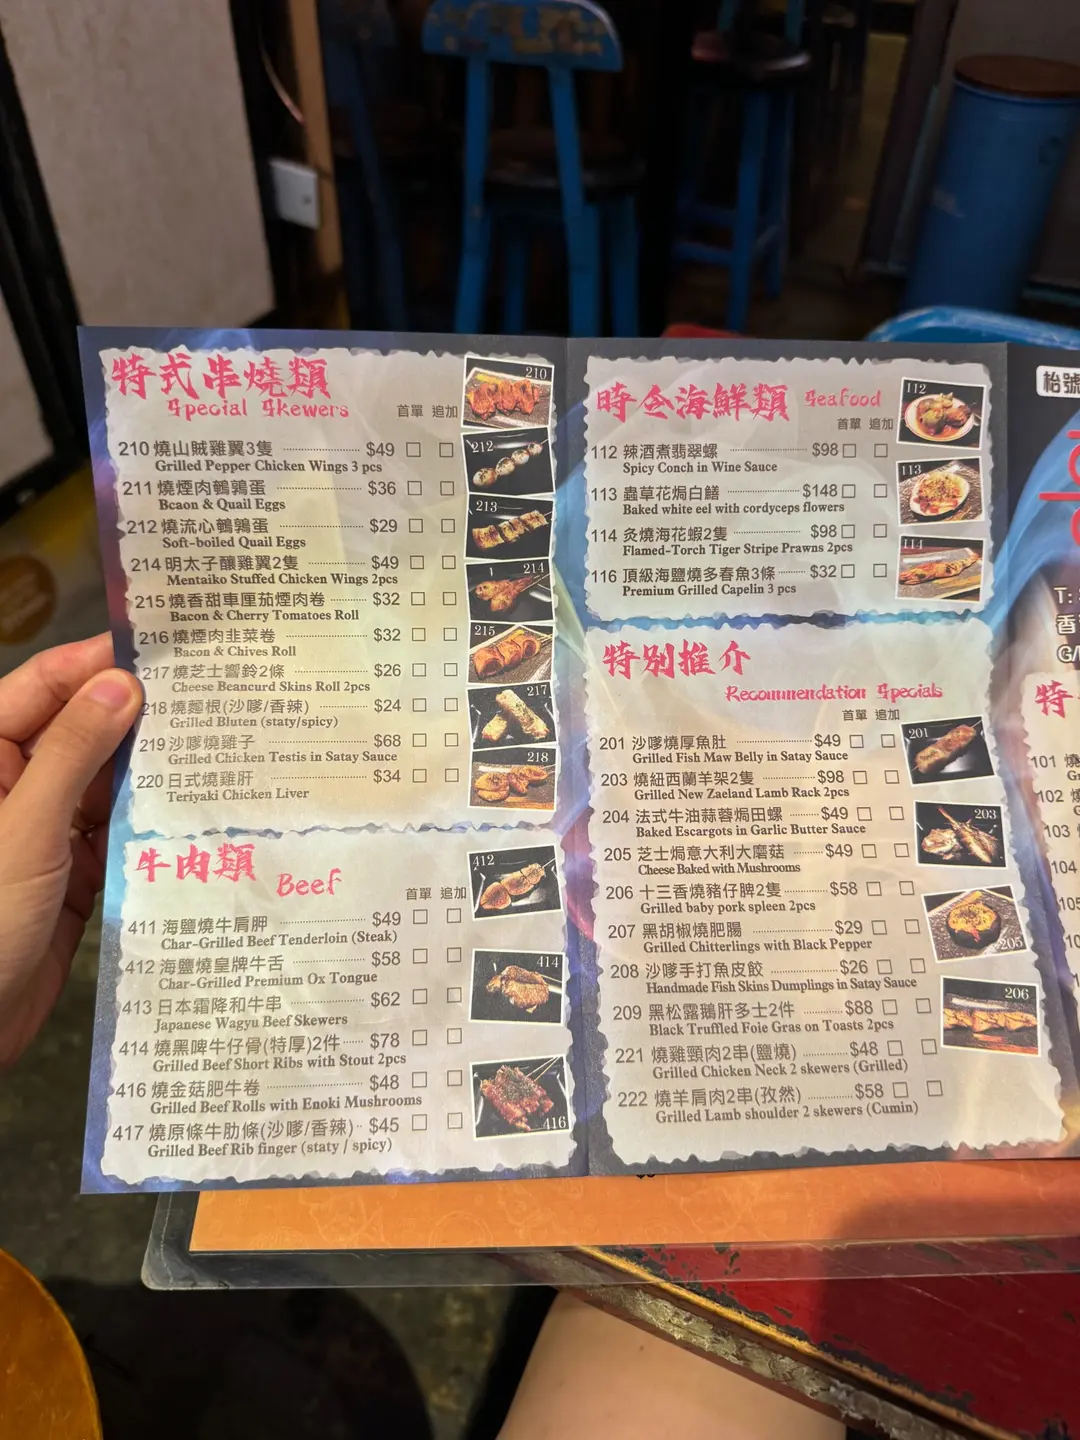 特式串燒類
Special Skewers
首單 追加
210 燒山賊雞翼3隻 $49
Grilled Pepper Chicken Wings 3 pcs
211 燒煙肉鵪鶉蛋 $36
Bcaon & Quail Eggs
212 燒流心鵪鶉蛋 $29
Soft-boiled Quail Eggs
214 明太子釀雞翼2隻 $49
Mentaiko Stuffed Chicken Wings 2pcs
215 燒香甜車厘茄煙肉卷 $32
Bacon & Cherry Tomatoes Roll
216 燒煙肉韭菜卷 $32
Bacon & Chives Roll
217 燒芝士響鈴2條 $26
Cheese Beancurd Skins Roll 2pcs
218 燒麵根(沙嗲/香辣) $24
Grilled Bluten (staty/spicy)
219 沙嗲燒雞子 $68
Grilled Chicken Testis in Satay Sauce
220 日式燒雞肝 $34
Teriyaki Chicken Liver
210
212
213
214
215
217
218
牛肉類
Beef
首單 追加
411 海鹽燒牛肩胛 $49
Char-Grilled Beef Tenderloin (Steak)
412 海鹽燒皇牌牛舌 $58
Char-Grilled Premium Ox Tongue
413 日本霜降和牛串 $62
Japanese Wagyu Beef Skewers
414 燒黑啤牛仔骨(特厚)2件 $78
Grilled Beef Short Ribs with Stout 2pcs
416 燒金菇肥牛卷 $48
Grilled Beef Rolls with Enoki Mushrooms
417 燒原條牛肋條(沙嗲/香辣) $45
Grilled Beef Rib finger (staty / spicy)
412
414
416
時令海鮮類 Seafood
首單 追加
112 辣酒煮翡翠螺 $98
Spicy Conch in Wine Sauce
113 蟲草花焗白鱔 $148
Baked white eel with cordyceps flowers
114 炙燒海花蝦2隻 $98
Flamed-Torch Tiger Stripe Prawns 2pcs
116 頂級海鹽燒多春魚3條 $32
Premium Grilled Capelin 3 pcs
112
113
114
特別推介
Recommendation Specials
首單 追加
201 沙嗲燒厚魚肚 $49
Grilled Fish Maw Belly in Satay Sauce
203 燒紐西蘭羊架2隻 $98
Grilled New Zaeland Lamb Rack 2pcs
204 法式牛油蒜蓉焗田螺 $49
Baked Escargots in Garlic Butter Sauce
205 芝士焗意大利大磨菇 $49
Cheese Baked with Mushrooms
206 十三香燒豬仔脾2隻 $58
Grilled baby pork spleen 2pcs
207 黑胡椒燒肥腸 $29
Grilled Chitterlings with Black Pepper
208 沙嗲手打魚皮餃 $26
Handmade Fish Skins Dumplings in Satay Sauce
209 黑松露鵝肝多士2件 $88
Black Truffled Foie Gras on Toasts 2pcs
221 燒雞頸肉2串(鹽燒) $48
Grilled Chicken Neck 2 skewers (Grilled)
222 燒羊肩肉2串(孜然) $58
Grilled Lamb shoulder 2 skewers (Cumin)
201
203
205
206
枱號
T:
香
G/
特
101 燒
102
103
104